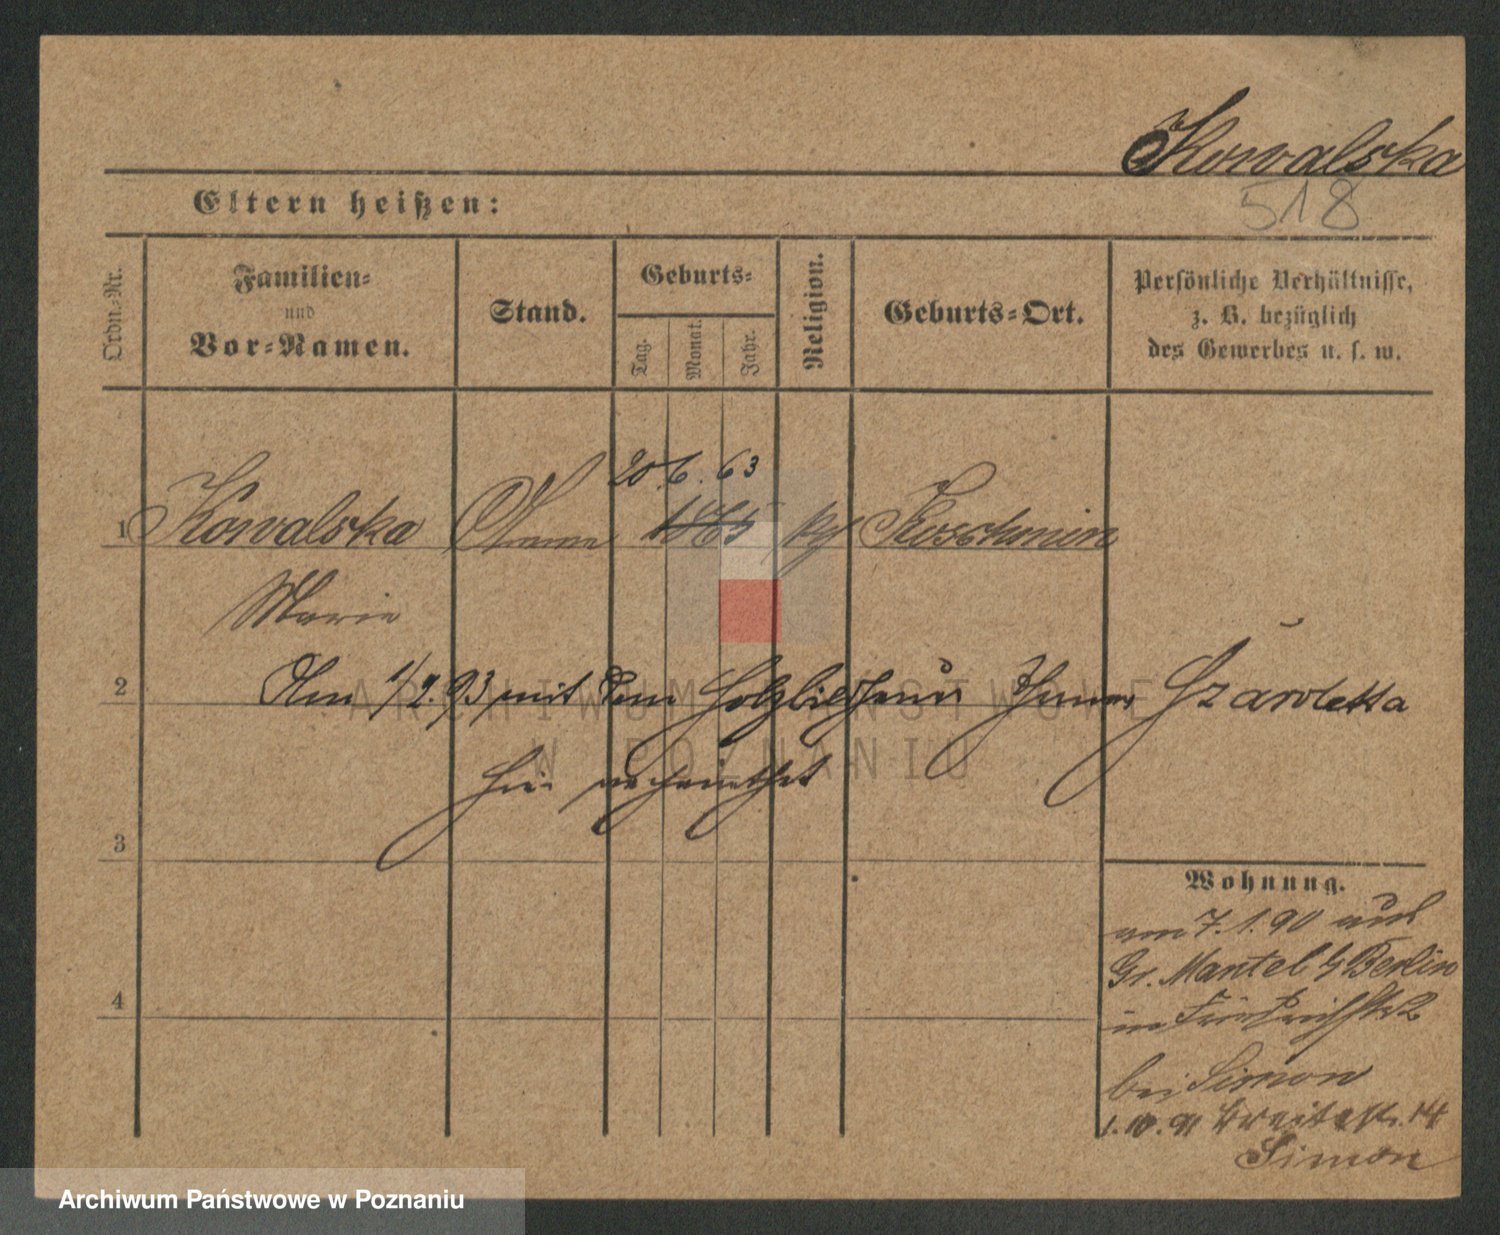 Kowalska
518
Eltern heißen:
Ordn.-Nr.
Familien-
und
Vor-Namen.
Stand.
Geburts-
Tag.
Monat.
Jahr.
Religion.
Geburts-Ort.
Persönliche Verhältnisse,
z. B. bezüglich
des Gewerbes u. s. w.
20. 6. 63
1 Kowalska Amme 1865 kg Koschmin
Marie
2 Am 1/2. 93 mit dem
hier verheirathet
3
Wohnung.
am 7. 1. 90 aus
Gr. Mantel b/ Berlin
in Friedrichstr. 2
4
bei Simon
1. 10. 91 Breitestr. 14
Simon
ARCHIWUM PAŃSTWOWE
W POZNANIU
Archiwum Państwowe w Poznaniu